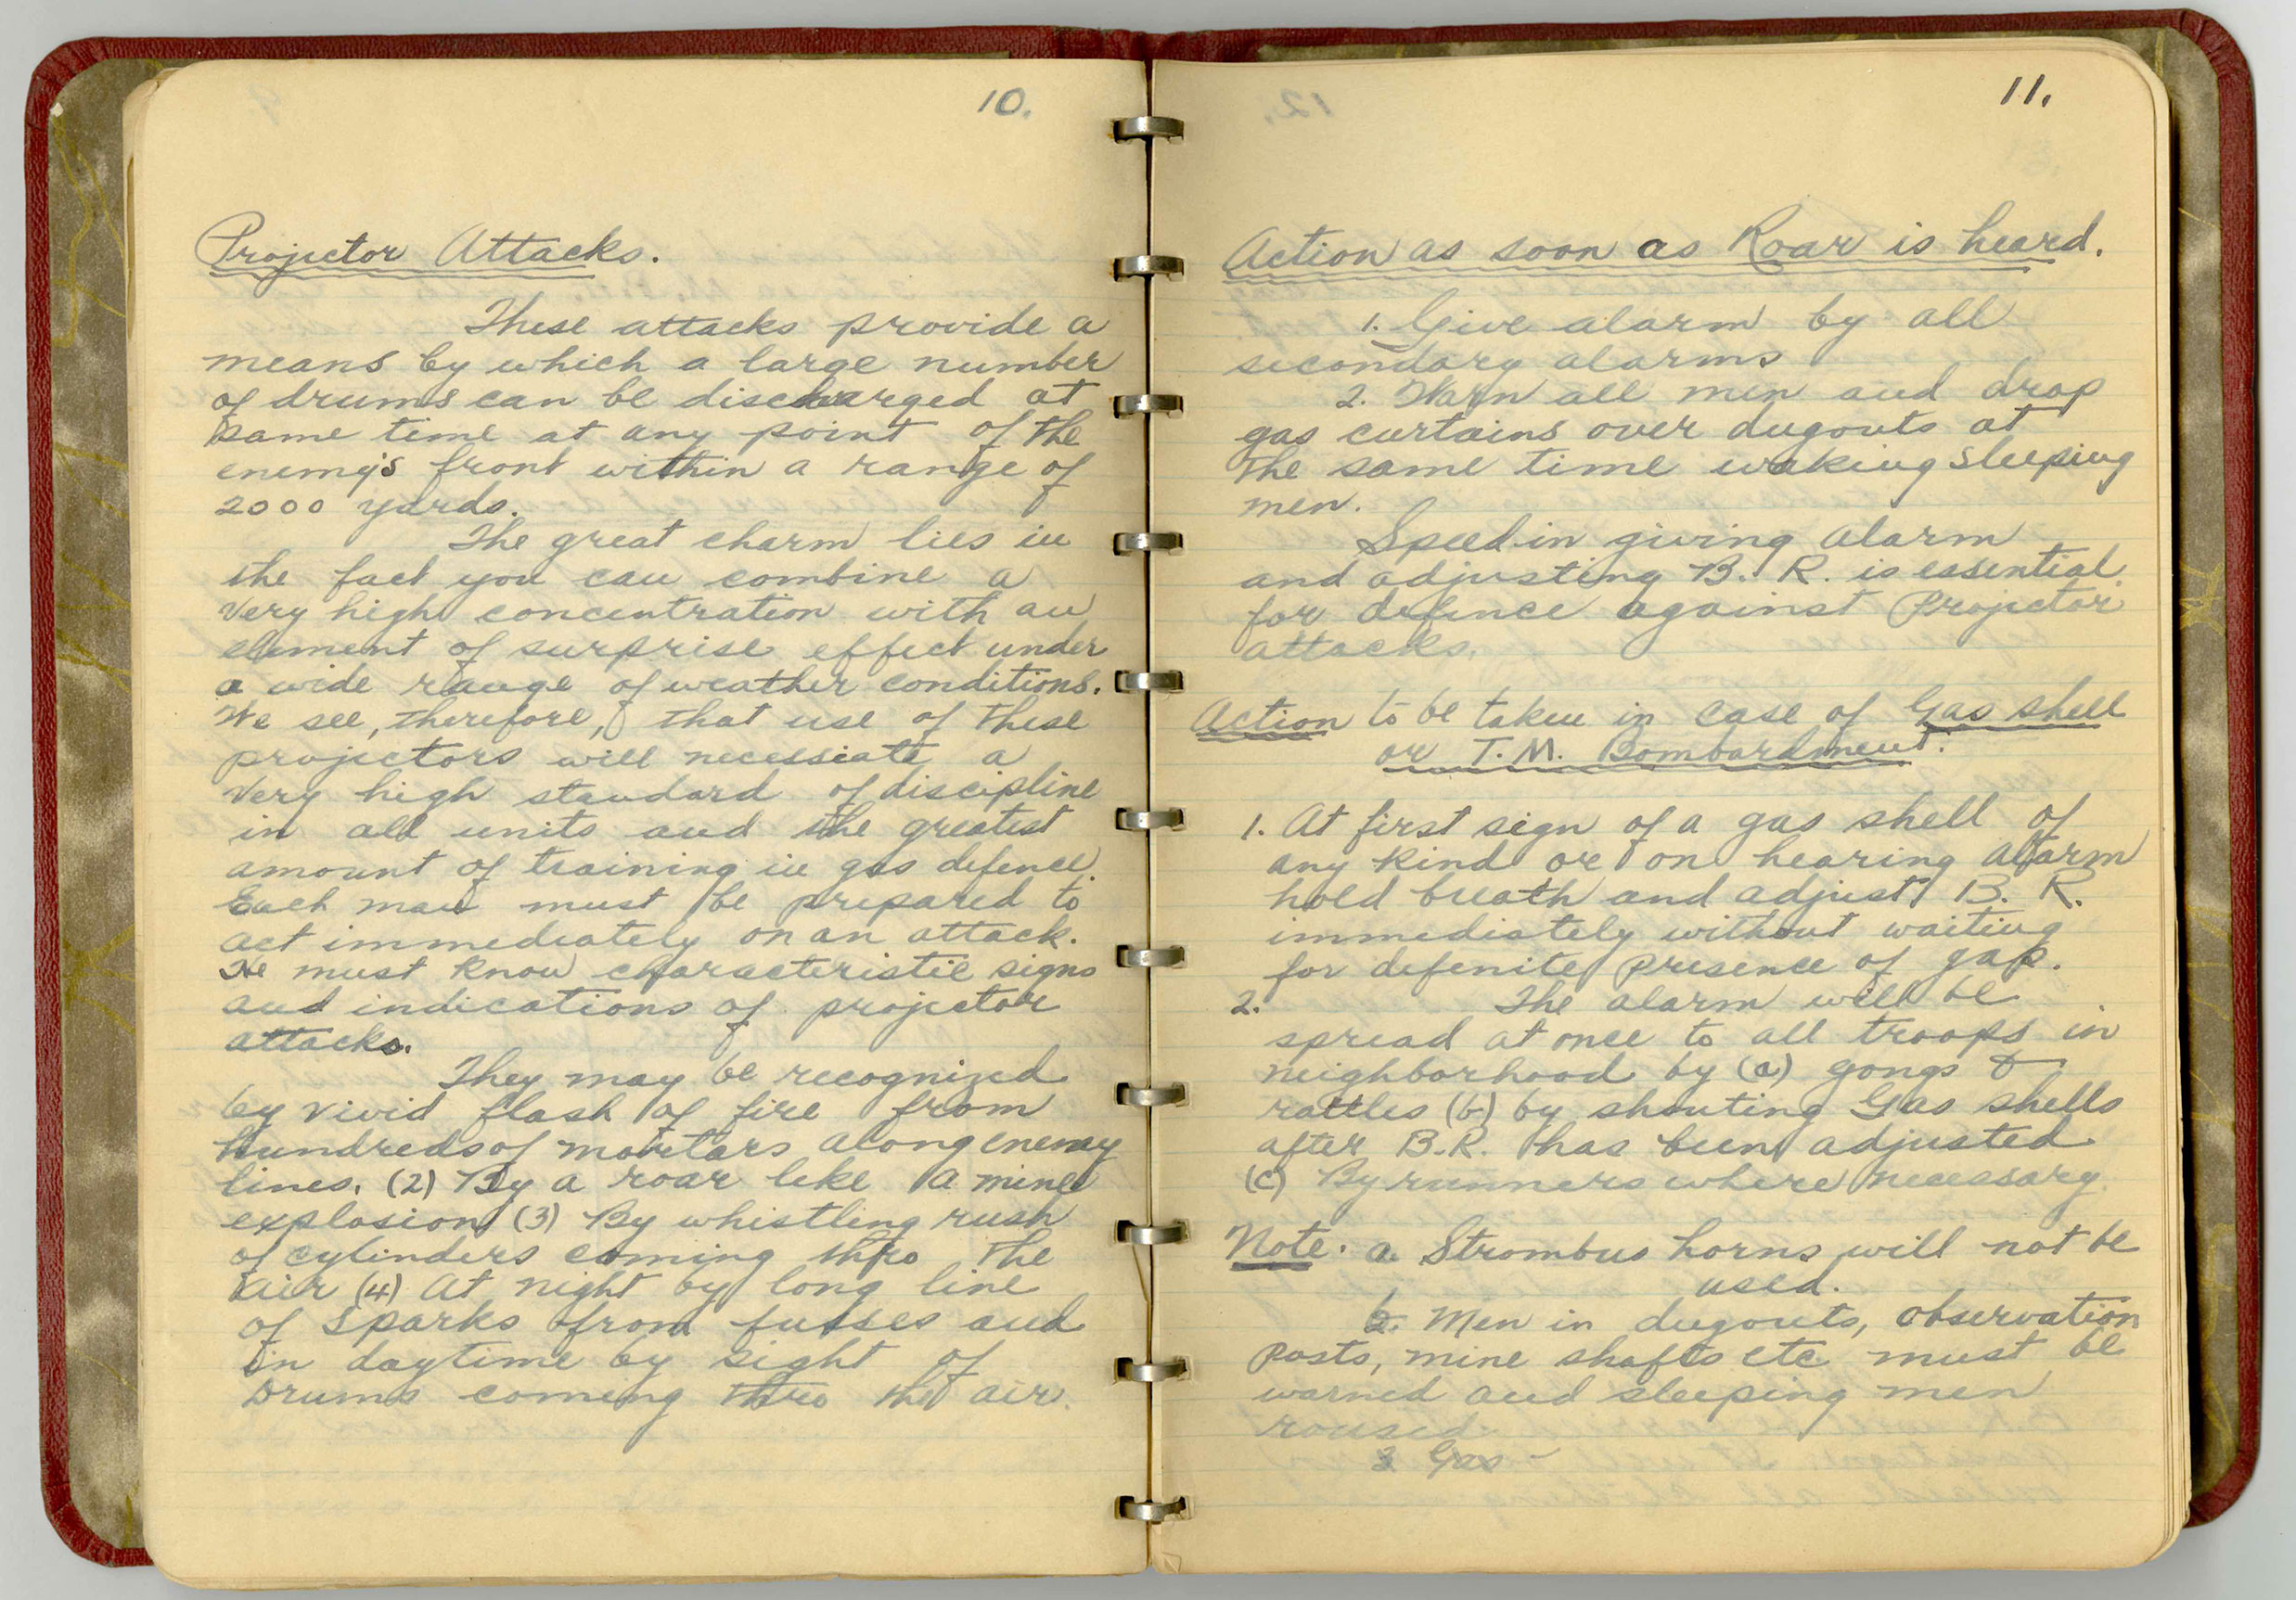 10.
Projector Attacks.
These attacks provide a
means by which a large number
of drums can be discharged at
same time at any point of the
enemy's front within a range of
2000 yards.
The great charm lies in
the fact you can combine a
very high concentration with an
element of surprise effect under
a wide range of weather conditions.
We see, therefore, that use of these
projectors will necessiate a
very high standard of discipline
in all units and the greatest
amount of training in gas defence.
Each man must be prepared to
act immediately on an attack.
He must know characteristic signs
and indications of projector
attacks.
They may be recognized
by vivid flash of fire from
hundreds of mortars along enemy
lines. (2) By a roar like a mine
explosion (3) By whistling rush
of cylinders coming thro the
air (4) At night by long line
of sparks from fusses and
in daytime by sight of
Drums coming thro the air.
11.
Action as soon as Roar is heard.
1. Give alarm by all
secondary alarms
2. Warn all men and drop
gas curtains over dugouts at
the same time waking sleeping
men.
Speed in giving alarm
and adjusting B. R. is essential
for defence against Projector
attacks.
Action to be taken in case of Gas shell
or T. M. Bombardment.
1. At first sign of a gas shell of
any kind or on hearing alarm
hold breath and adjust B. R.
immediately without waiting
for defenite presence of gas.
2. The alarm will be
spread at once to all troops in
neighborhood by (a) gongs &
rattles (b) by shouting Gas shells
after B.R. has been adjusted
(c) By runners where necessary.
Note. a. Strombus horns will not be
used.
b. Men in dugouts, observation
posts, mine shafts etc must be
warned and sleeping men
roused.
3. Gas -